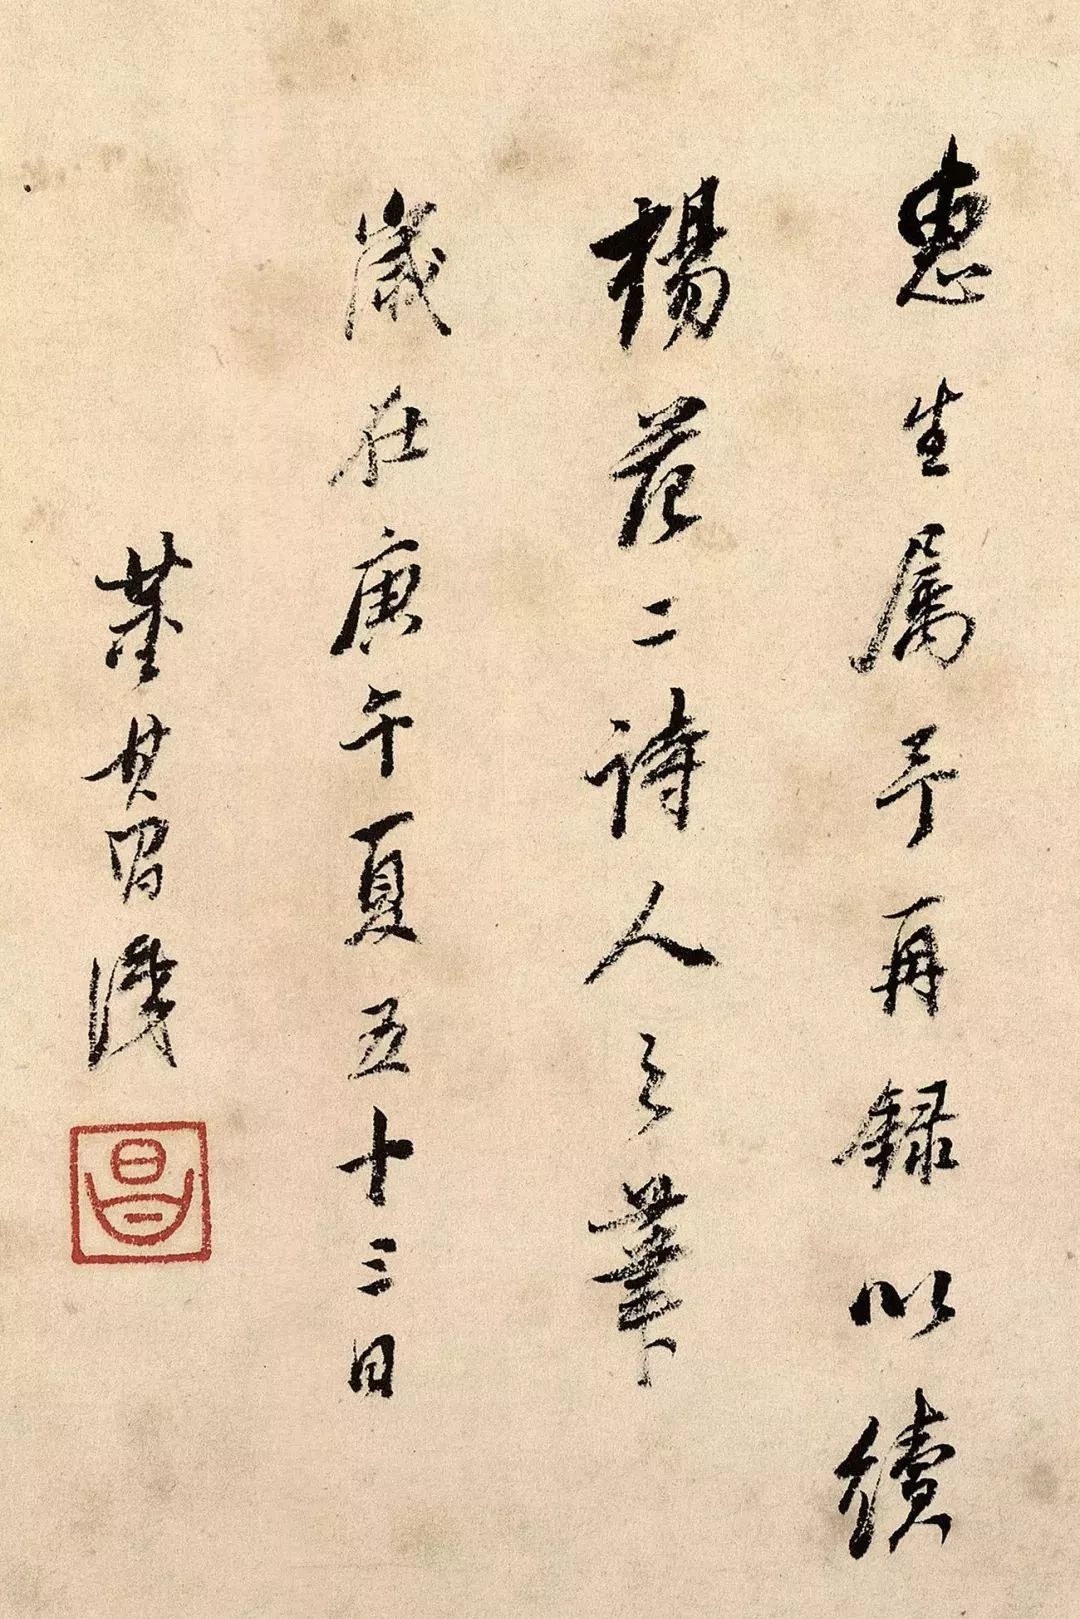 惠生属予再録以續
楊范二詩人之筆
歲在庚午夏五十三日
董其昌識
昌